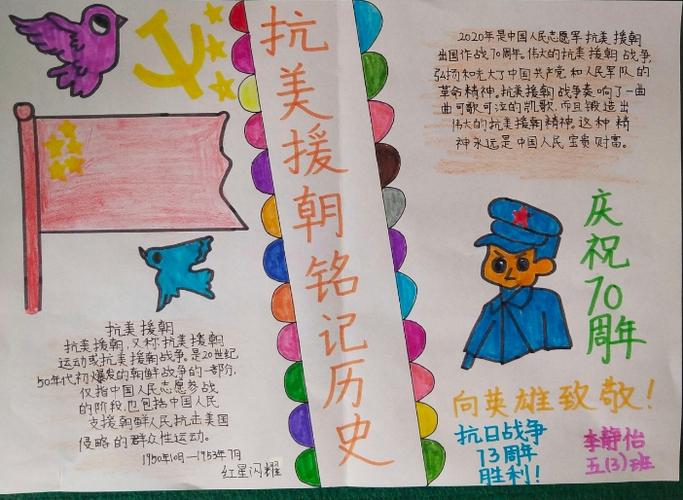 抗美援朝铭记历史
2020年是中国人民志愿军抗美援朝
出国作战70周年。伟大的抗美援朝战争,
弘扬和光大了中国共产党和人民军队的
革命精神。抗美援朝战争奏响了一曲
曲可歌可泣的凯歌。而且锻造出
伟大的抗美援朝精神。这种精
神永远是中国人民宝贵财富。
庆祝70周年
抗美援朝
抗美援朝,又称抗美援朝
运动或抗美援朝战争。是20世纪
50年代初爆发的朝鲜战争的一部分,
仅指中国人民志愿参战
的阶段,也包括中国人民
支援朝鲜人民抗击美国
侵略的群众性运动。
1950年10月—1953年7月
红星闪耀
向英雄致敬!
抗日战争
73周年
胜利!
李静怡
五(3)班